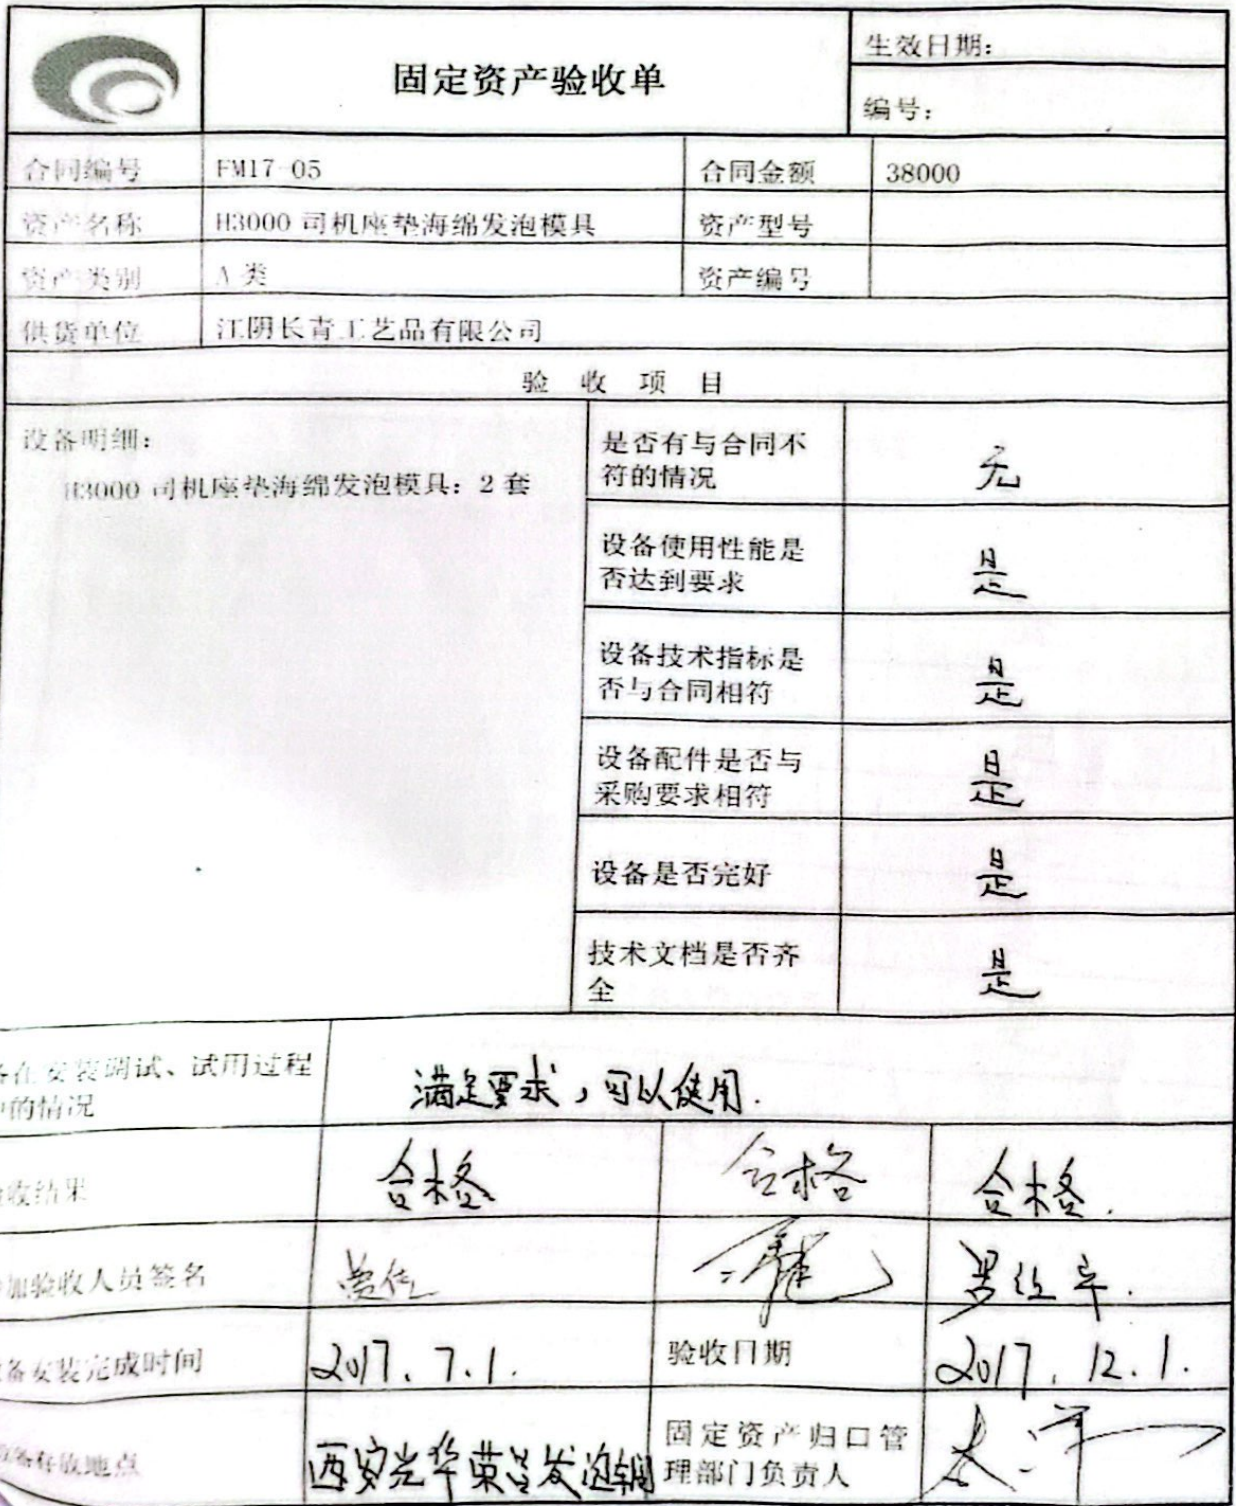 固定资产验收单
生效日期：
编号：
合同编号 FM17-05 合同金额 38000
资产名称 H3000 司机座垫海绵发泡模具 资产型号
资产类别 A 类 资产编号
供货单位 江阴长青工艺品有限公司
验 收 项 目
设备明细：
H3000 司机座垫海绵发泡模具：2 套
是否有与合同不
符的情况
无
设备使用性能是
否达到要求
是
设备技术指标是
否与合同相符
是
设备配件是否与
采购要求相符
是
设备是否完好
是
技术文档是否齐
全
是
备在安装调试、试用过程
中的情况
满足要求，可以使用.
收结果 合格 合格 合格.
加验收人员签名
备安装完成时间 2017.7.1. 验收日期 2017.12.1.
备存放地点 西安光华荣昌发泡
固定资产归口管
理部门负责人